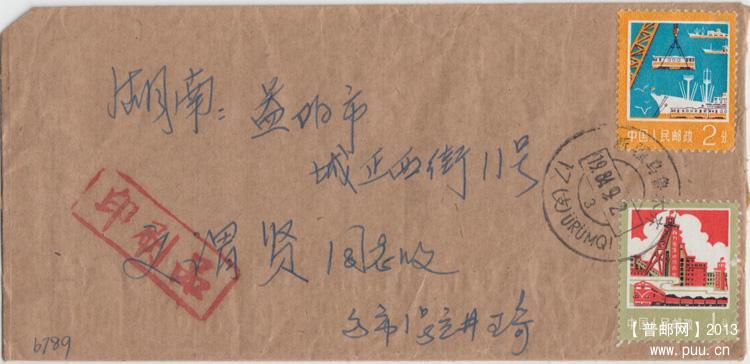 湖南:益阳市
城正西街11号
文渭贤同志收
印刷品
中国人民邮政 2分
新疆乌鲁木齐
17(支)ÜRÜMQI
中国人民邮政 1分
6789
【普邮网】2013
www.puu.cn